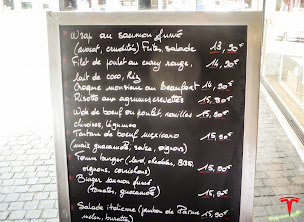 Wrap au saumon fumé
(avocat, crudités) Frites, salade 13,90€
Filet de poulet au curry rouge, 14,90€
lait de coco, Riz
Croque monsieur au beaufort 14,90€
Risotto aux agrumes crevettes 15,90€
Wok de boeuf ou poulet, nouilles 15,90€
chinoises, légumes
Tartare de boeuf mexicano 15,90€
(maïs, guacamole, salsa, oignons)
burger (lard, cheddar, BBQ, 15,90€
oignons, cornichons)
Burger saumon fumé
(tomates, guacamole) 15,90€
Salade italienne (jambon de Parme 15,90€
melon, burrata)